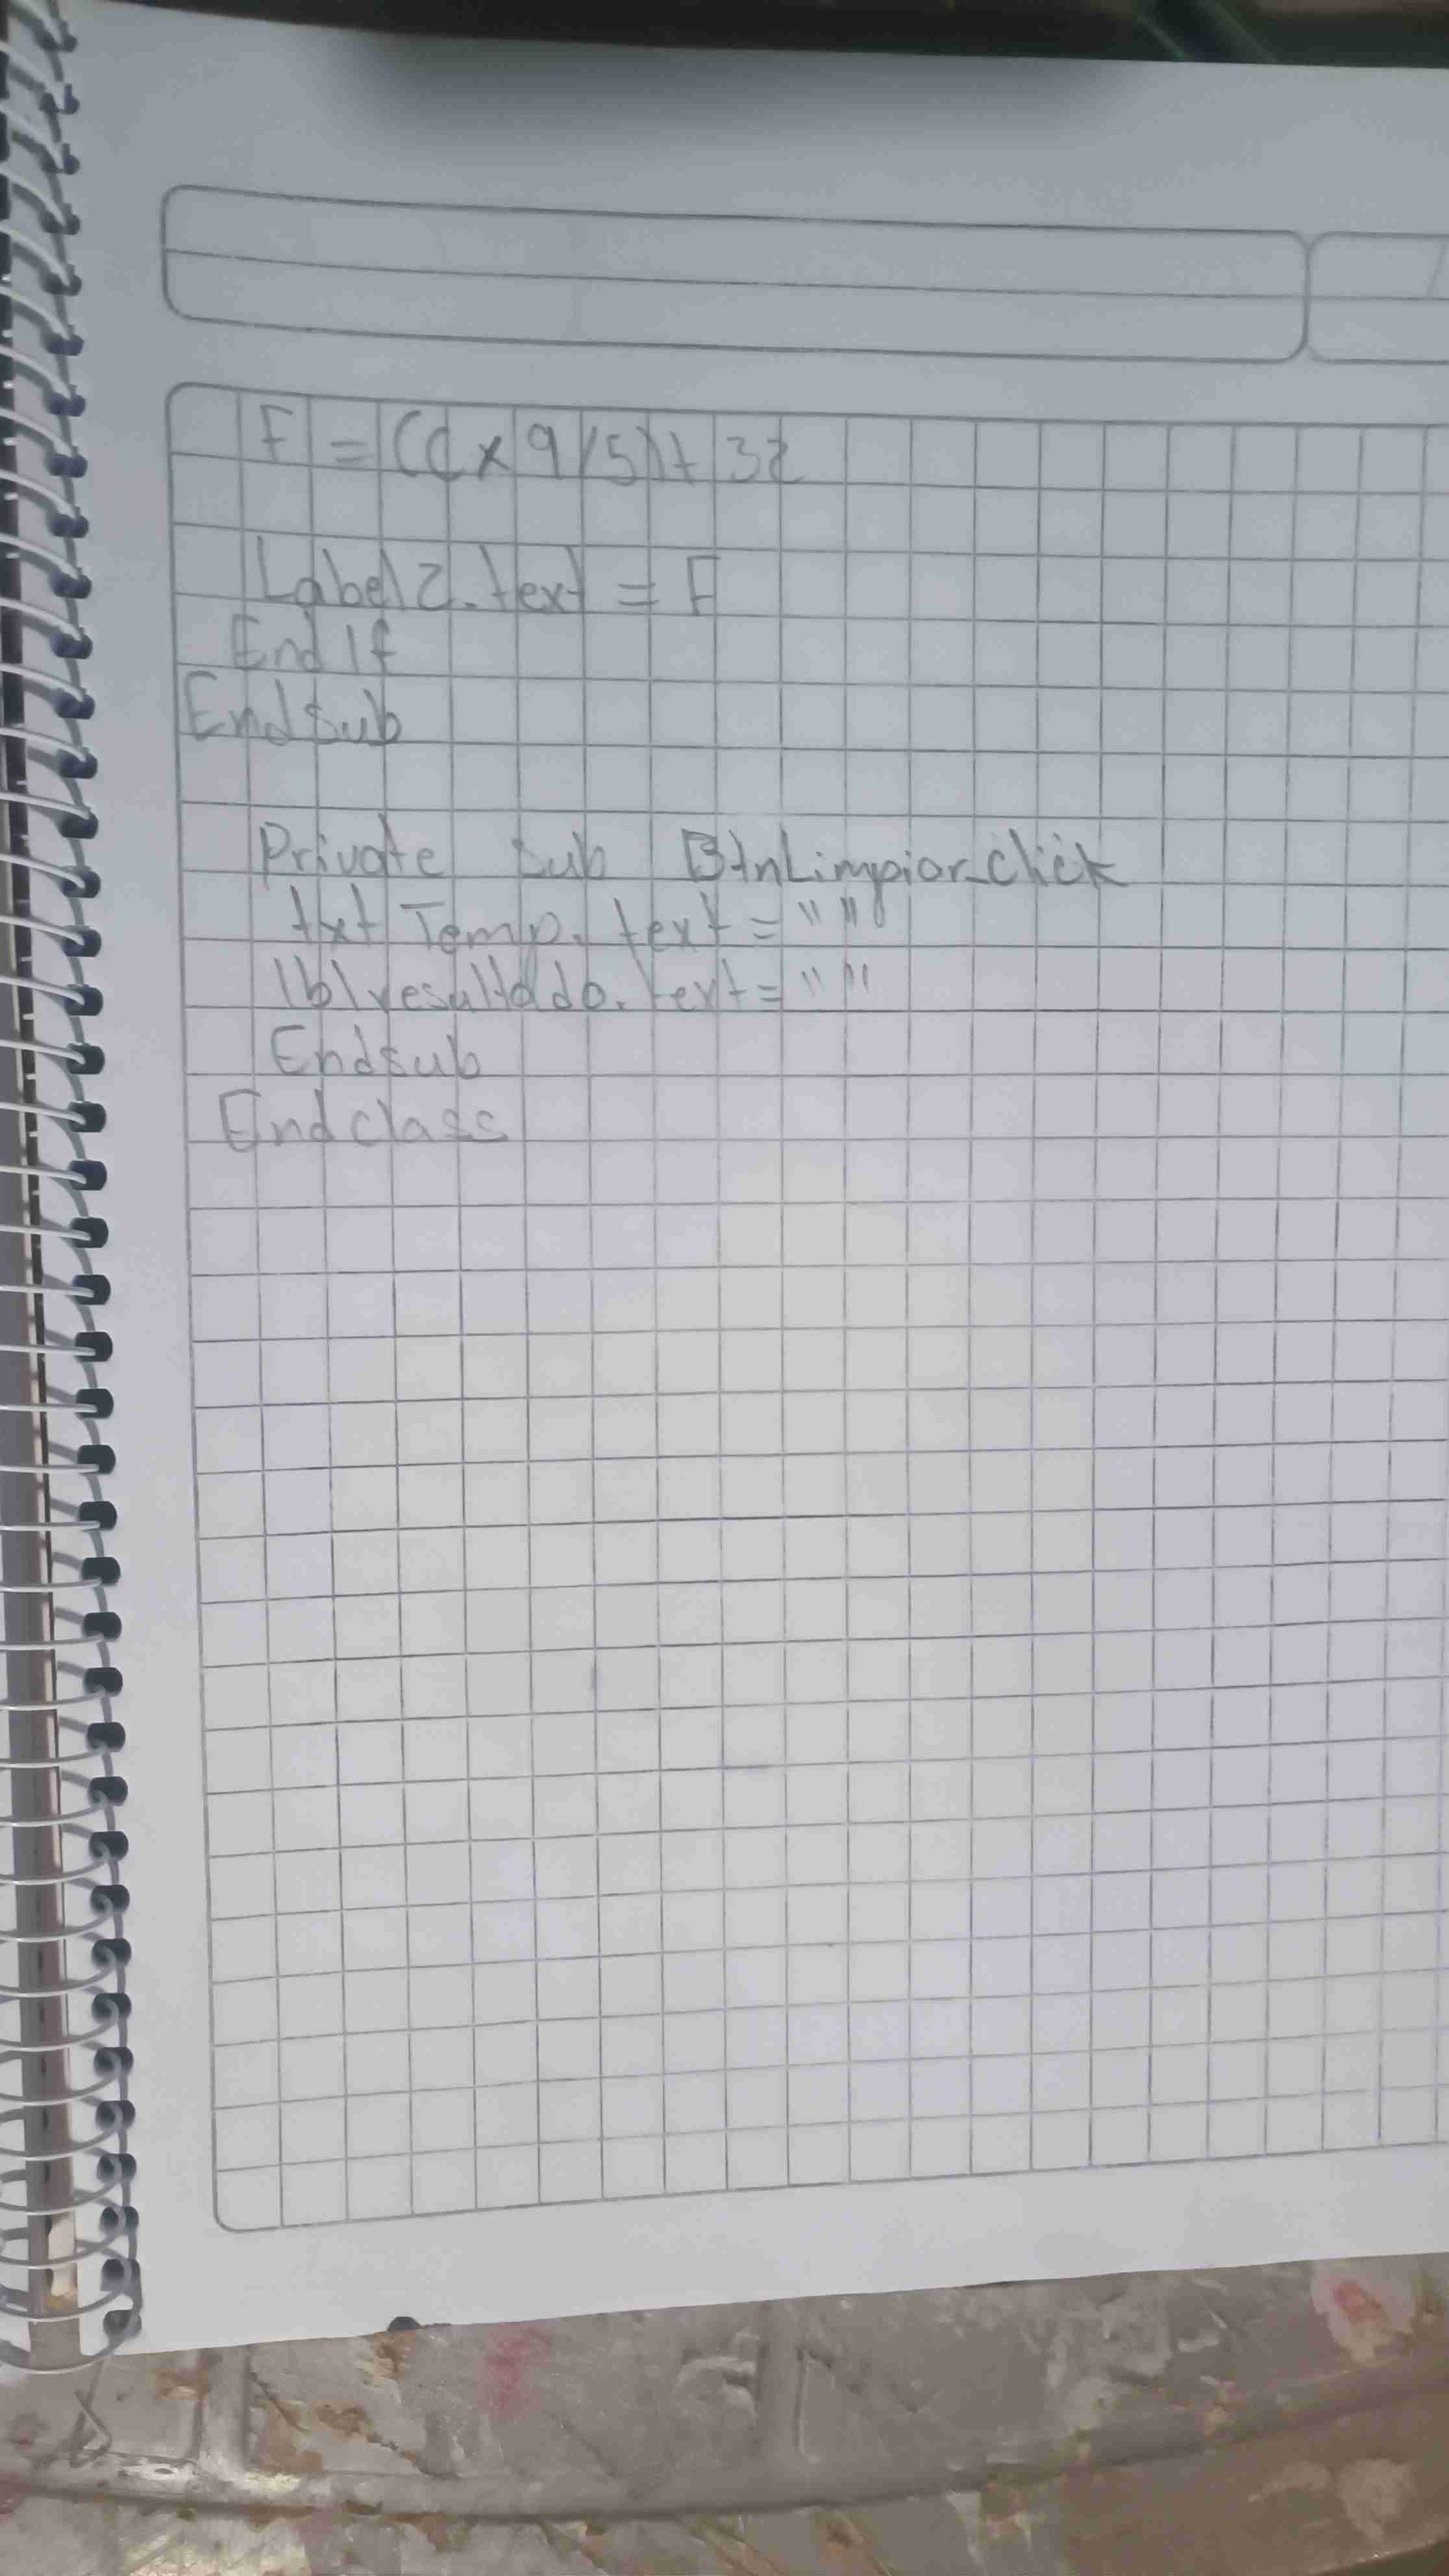 F = ((C x 9/5)) + 32
Label2.text = F
End If
End sub
Private sub BtnLimpiar_click
txt Temp. text = " "
lblresultado. text = " "
Endsub
End class